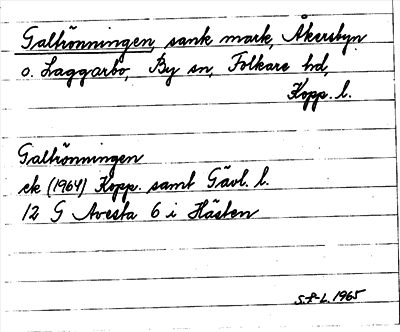 Galtrönningen, sank mark, Åkersbyn
o. Laggarbo, By sn, Folkare hd,
Kopp. l.
Galtrönningen
ek (1964) Kopp. samt Gävl. l.
12 G Avesta 6 i Hästen
S.F-L. 1965